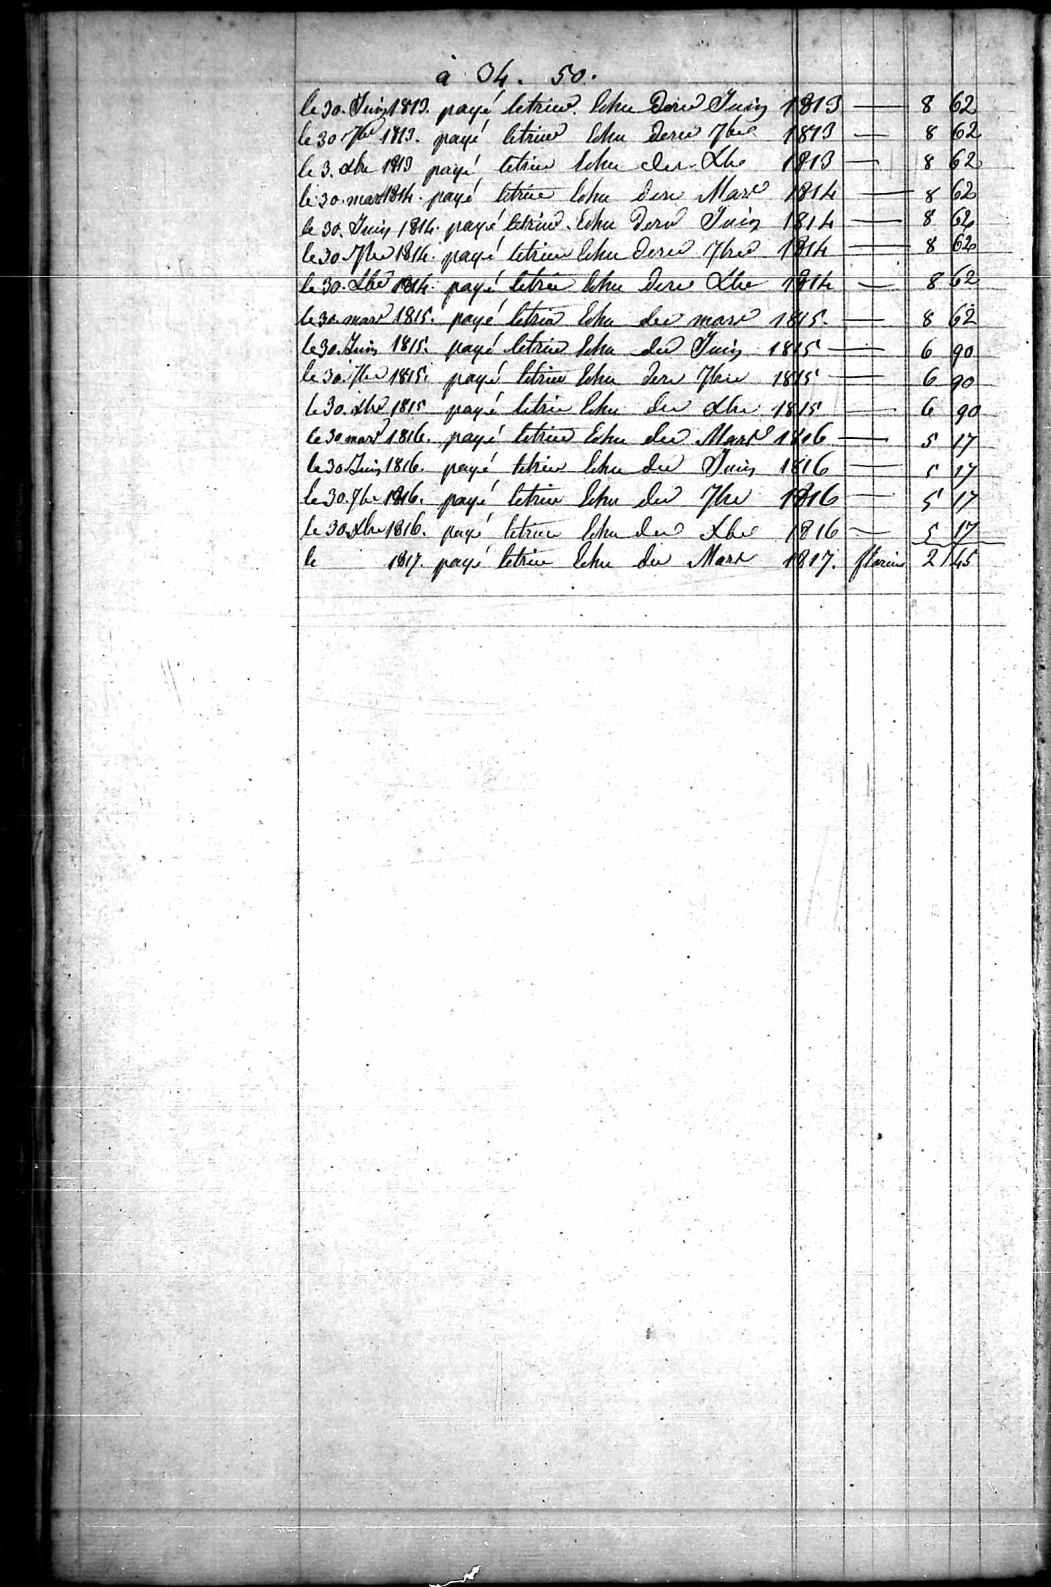 à 34. 50.
le 30. Juin 1813. payé letrim. Echu Dere Juin 1813 — 8 62
le 30 7bre 1813. payé letrim Echu dere 7bre 1813 — 8 62
le 3. Xbre 1813 payé letrim Echu der Xbre 1813 — 8 62
le 30. mars 1814. payé letrim Echu dere Mars 1814 — 8 62
le 30. Juin 1814. payé letrim. Echu dere Juin 1814 — 8 62
le 30. 7bre 1814. payé letrim Echu dere 7bre 1814 — 8 62
le 30. Xbre 1814. payé letrim Echu dere Xbre 1814 — 8 62
le 30. mars 1815. payé letrim Echu der mars 1815. — 8 62
le 30. Juin 1815. payé letrim Echu der Juin 1815 — 6 90
le 30. 7bre 1815. payé letrim Echu dere 7bre 1815 — 6 90
le 30. Xbre 1815 payé letrim Echu der Xbre 1815 — 6 90
le 30 mars 1816. payé letrim Echu der Mars 1816 — 5 17
le 30. Juin 1816. payé letrim Echu der Juin 1816 — 5 17
le 30. 7bre 1816. payé letrim Echu der 7bre 1816 — 5 17
le 30. Xbre 1816. payé letrim Echu der Xbre 1816 — 5 17
le 1817. payé letrim Echu der Mars 1817. florins 2 45